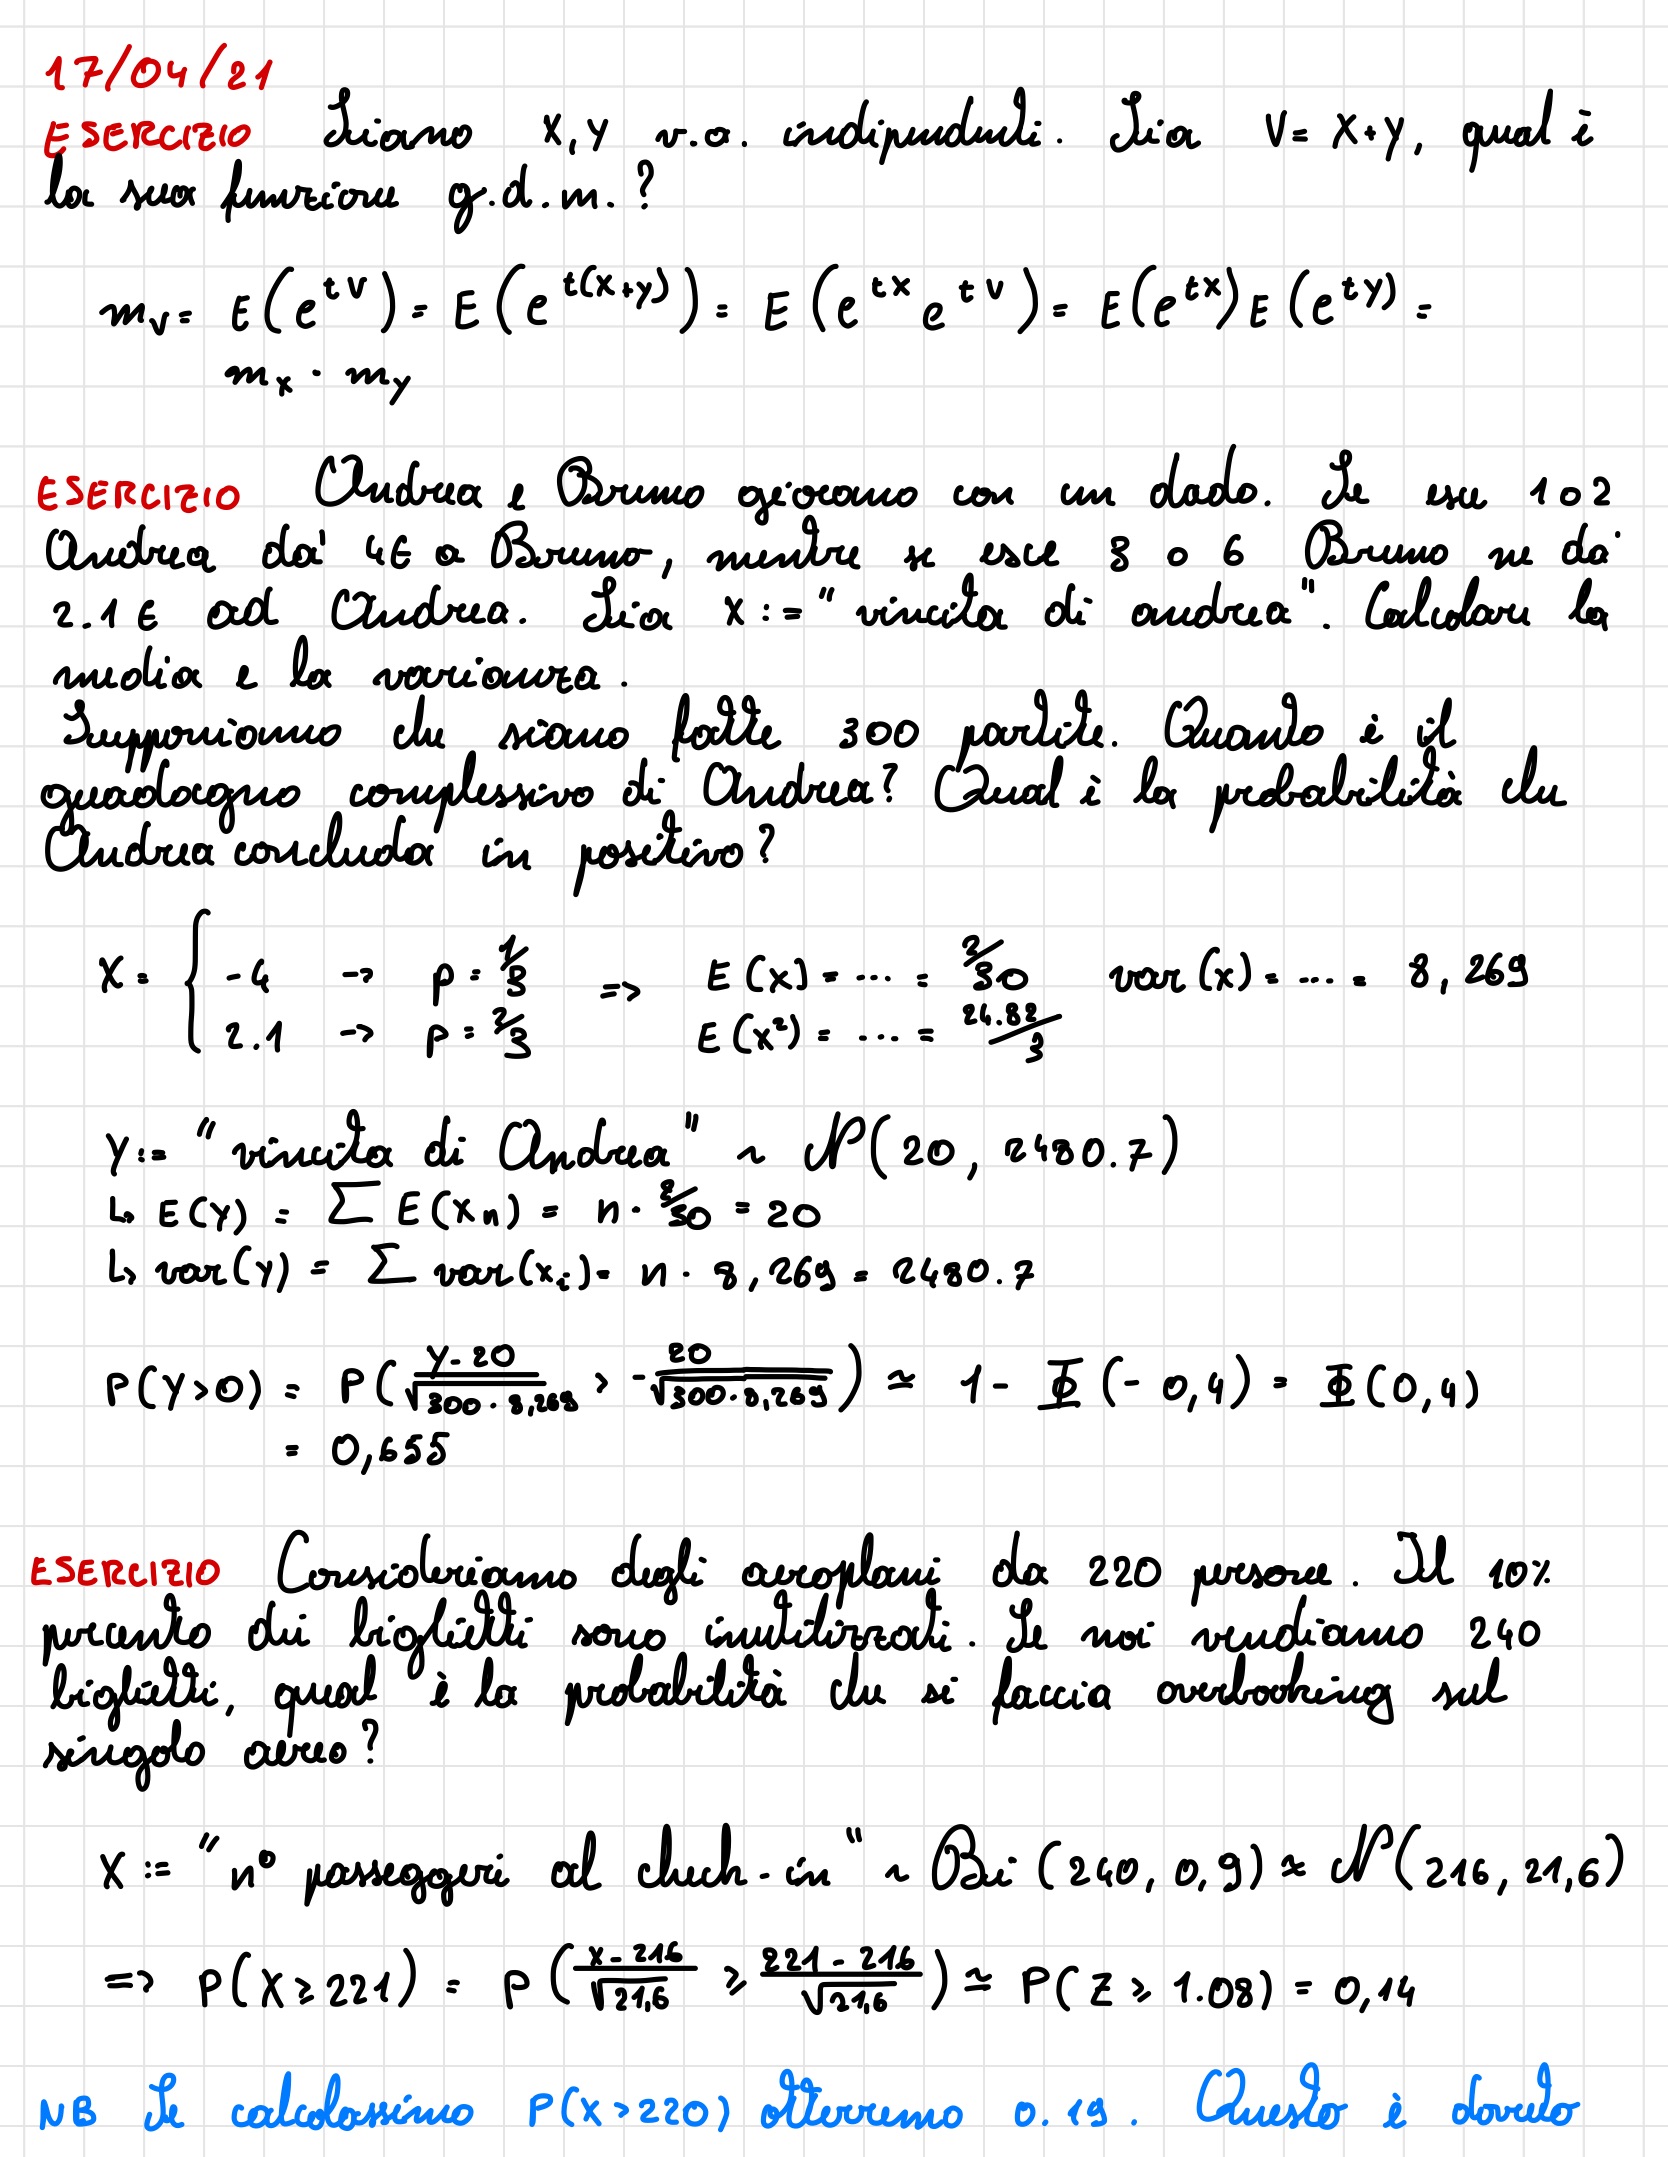 17/04/21
ESERCIZIO Siano X, Y v.a. indipendenti. Sia V= X+Y, qual è
la sua funzione g.d.m.?
m_V = E(e^{tV}) = E(e^{t(X+Y)}) = E(e^{tX} e^{tV}) = E(e^{tX})E(e^{tY}) =
m_X · m_Y
ESERCIZIO Andrea e Bruno giocano con un dado. Se esce 1 o 2
Andrea da' 4€ a Bruno, mentre se esce 3 o 6 Bruno ne da'
2.1€ ad Andrea. Sia X := "vincita di andrea". Calcolare la
media e la varianza.
Supponiamo che siano fatte 300 partite. Quanto è il
guadagno complessivo di Andrea? Qual è la probabilità che
Andrea concluda in positivo?
X = { -4 → p = 1/3 => E(X) = ... = 2/30 var(X) = ... = 8,269
2.1 → p = 2/3 E(X²) = ... = 24.82/3
Y := "vincita di Andrea" ~ N(20, 2480.7)
↳ E(Y) = Σ E(X_n) = n · 2/30 = 20
↳ var(Y) = Σ var(X_i) = n · 8,269 = 2480.7
P(Y>0) = P( (Y-20)/√(300·8,269) > - 20/√(300·8,269) ) ≃ 1 - Φ(-0,4) = Φ(0,4)
= 0,655
ESERCIZIO Consideriamo degli aeroplani da 220 persone. Il 10%
percento dei biglietti sono inutilizzati. Se noi vendiamo 240
biglietti, qual è la probabilità che si faccia overbooking sul
singolo aereo?
X := "n° passeggeri al check-in" ~ Bi(240, 0,9) ≈ N(216, 21,6)
=> P(X≥221) = P( (X-216)/√21,6 ≥ (221-216)/√21,6 ) ≃ P(Z ≥ 1.08) = 0,14
NB Se calcolassimo P(X>220) otterremo 0.19. Questo è dovuto